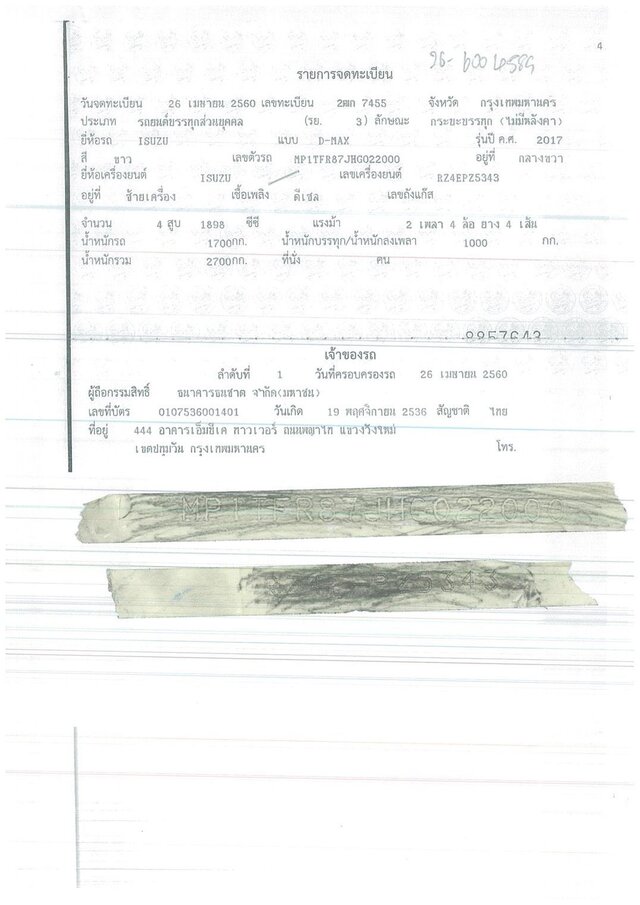 4
รายการจดทะเบียน
วันจดทะเบียน 26 เมษายน 2560 เลขทะเบียน 2ฒก 7455 จังหวัด กรุงเทพมหานคร
ประเภท รถยนต์บรรทุกส่วนบุคคล (รย. 3) ลักษณะ กระบะบรรทุก (ไม่มีหลังคา)
ยี่ห้อรถ ISUZU แบบ D-MAX รุ่นปี ค.ศ. 2017
สี ขาว เลขตัวรถ MP1TFR87JHG022000 อยู่ที่ กลางขวา
ยี่ห้อเครื่องยนต์ ISUZU เลขเครื่องยนต์ RZ4EPZ5343
อยู่ที่ ซ้ายเครื่อง เชื้อเพลิง ดีเซล เลขถังแก๊ส
จำนวน 4 สูบ 1898 ซีซี แรงม้า 2 เพลา 4 ล้อ ยาง 4 เส้น
น้ำหนักรถ 1700กก. น้ำหนักบรรทุก/น้ำหนักลงเพลา 1000 กก.
น้ำหนักรวม 2700กก. ที่นั่ง คน
8857643
เจ้าของรถ
ลำดับที่ 1 วันที่ครอบครองรถ 26 เมษายน 2560
ผู้ถือกรรมสิทธิ์ ธนาคารธนชาต จำกัด(มหาชน)
เลขที่บัตร 0107536001401 วันเกิด 19 พฤศจิกายน 2536 สัญชาติ ไทย
ที่อยู่ 444 อาคารเอ็มบีเค ทาวเวอร์ ถนนพญาไท แขวงวังใหม่
เขตปทุมวัน กรุงเทพมหานคร โทร.
MP1TFR87JHG022000